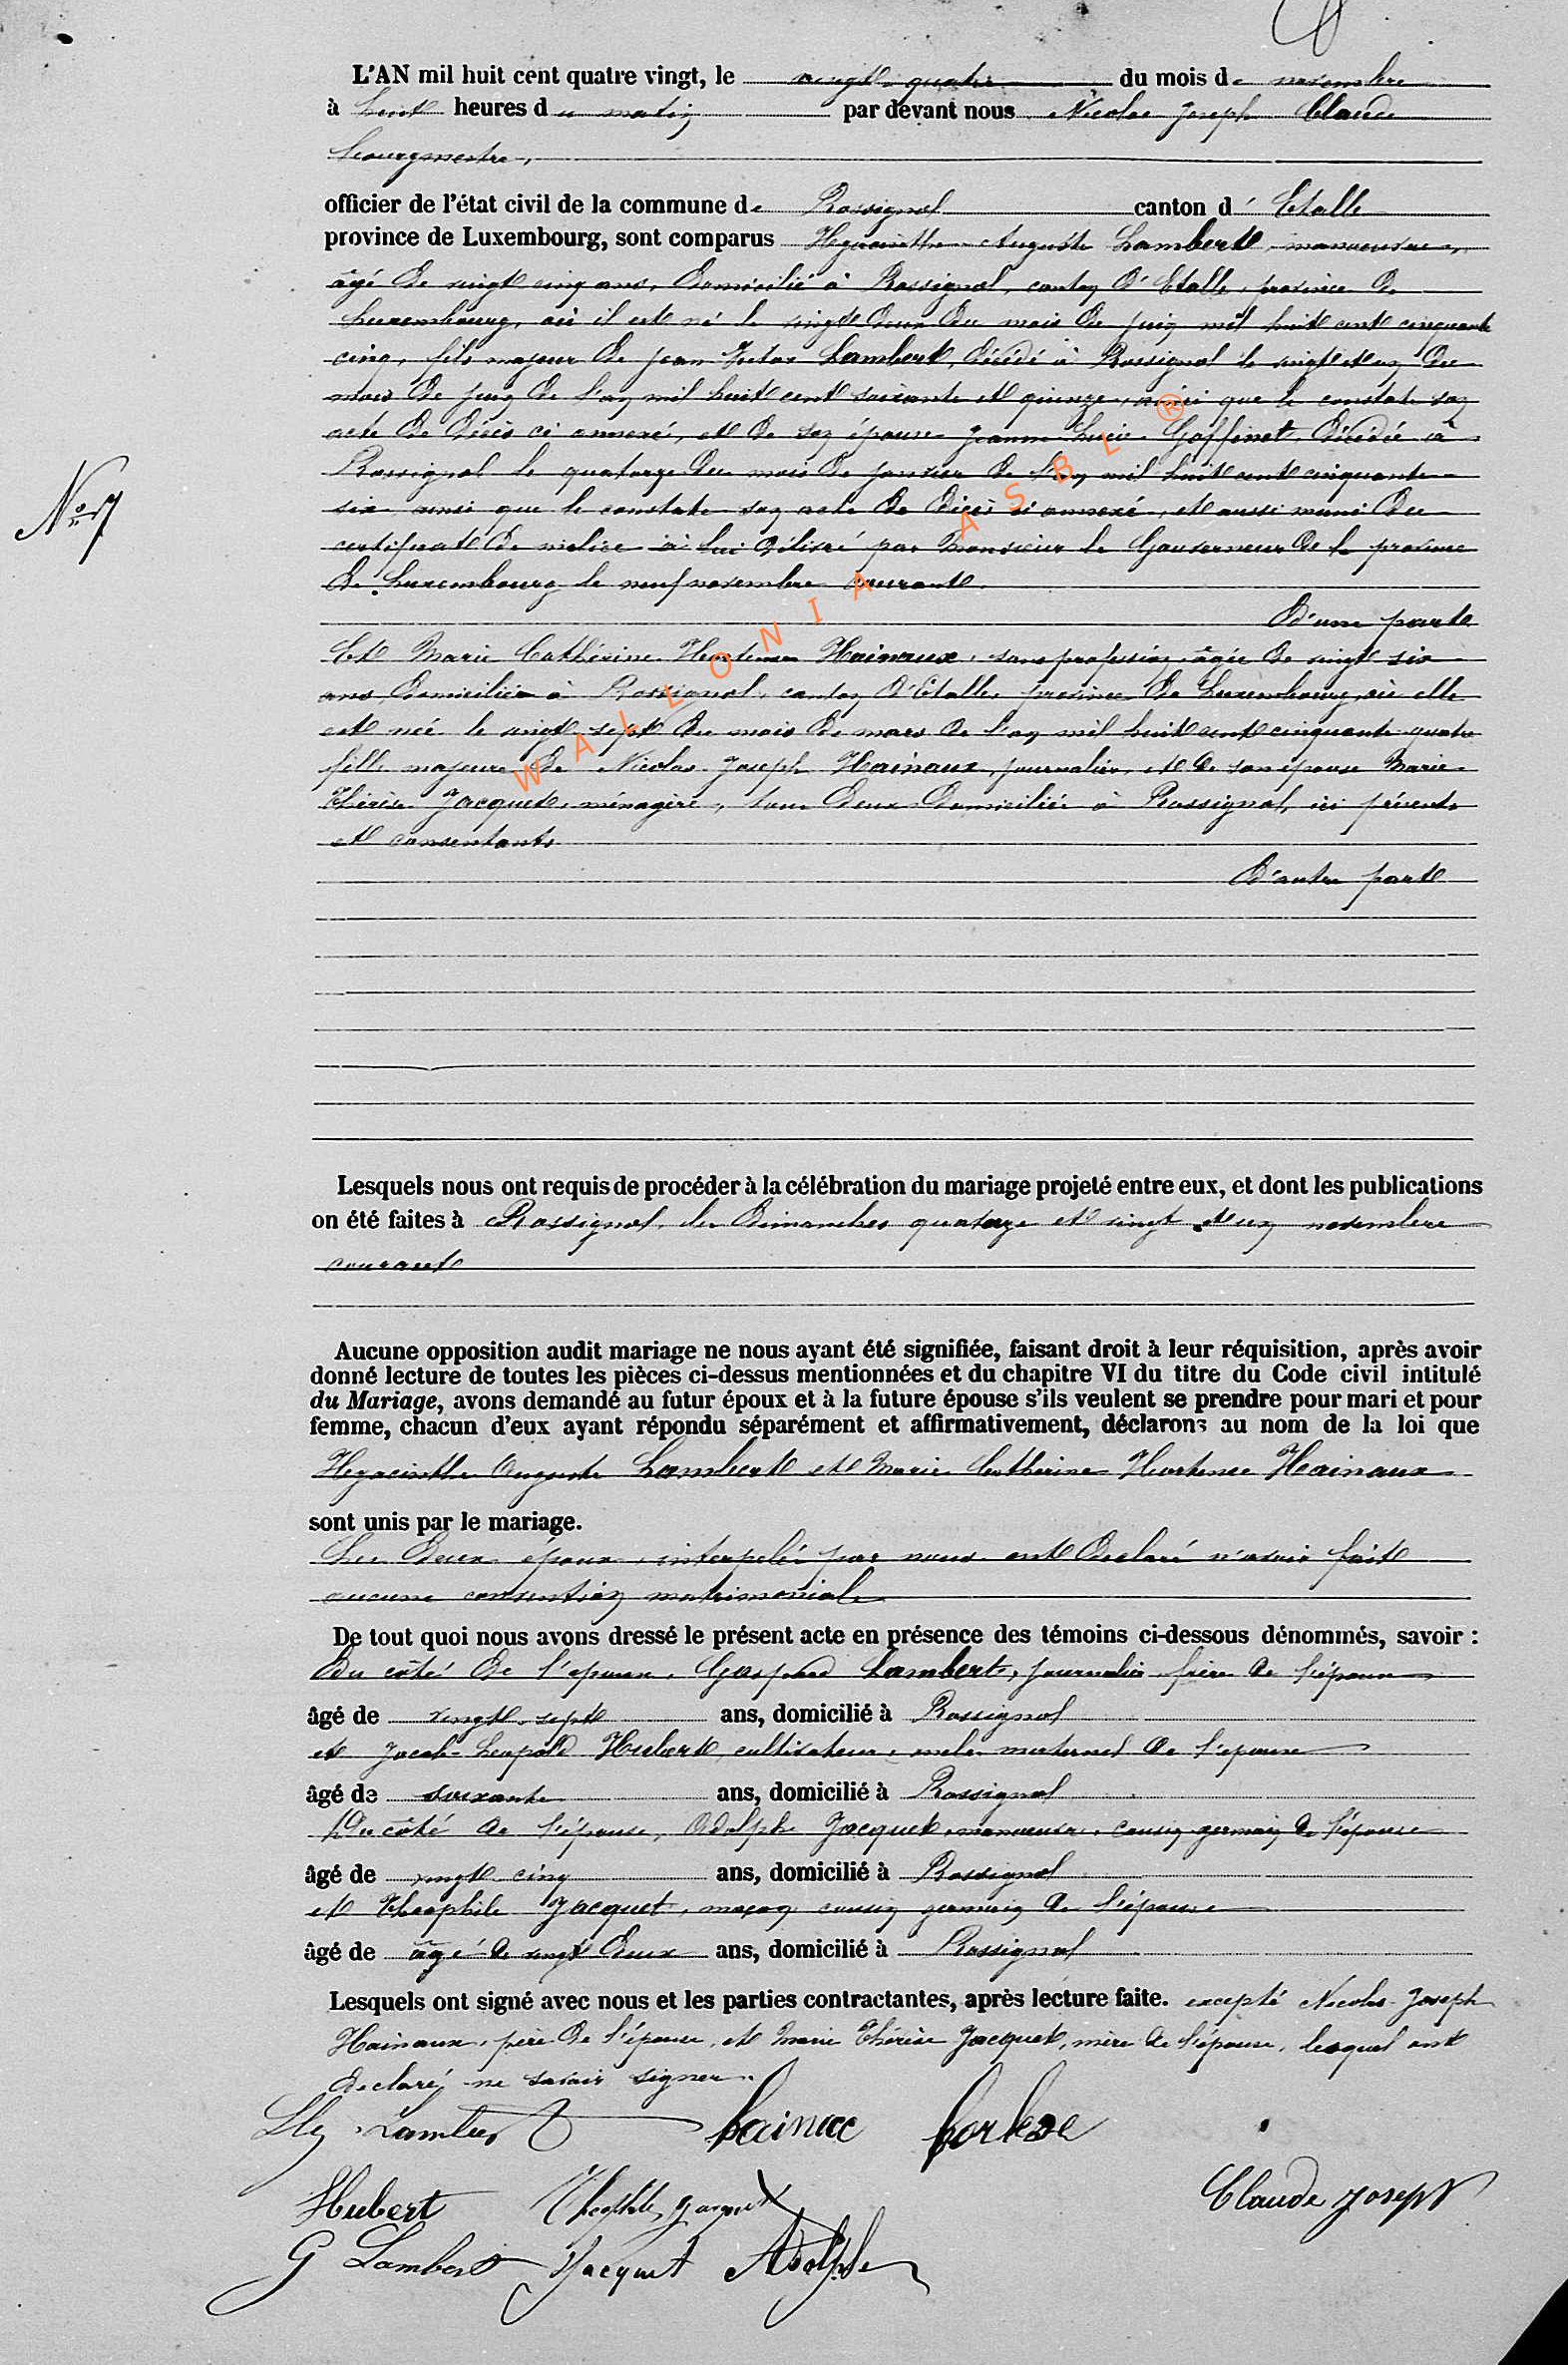 L'AN mil huit cent quatre vingt, le vingt quatre du mois de novembre
à huit heures du matin par devant nous Nicolas Joseph Claude
bourgmestre,
officier de l'état civil de la commune de Rossignol canton d'Etalle
province de Luxembourg, sont comparus Hyacinthe Auguste Lambert, manoeuvre,
âgé de vingt cinq ans, domicilié à Rossignol, canton d'Etalle, province de
Luxembourg, où il est né le vingt deux du mois de juin mil huit cent cinquante
cinq, fils majeur de Jean Victor Lambert, décédé à Rossignol le vingt et un du
mois de juin de l'an mil huit cent soixante et quinze, ainsi que le constate son
acte de décès ci annexé, et de son épouse Jeanne Lucie Goffinet, décédée à
Rossignol le quatorze du mois de janvier de l'an mil huit cent cinquante
six ainsi que le constate son acte de décès ci annexé, et aussi muni du
certificat de milice à lui délivré par Monsieur le Gouverneur de la province
de Luxembourg le neuf novembre courant.
D'une part
Et Marie Cathérine Hortense Hainaux, sans profession, âgée de vingt six
ans, domiciliée à Rossignol, canton d'Etalle, province de Luxembourg, où elle
est née le vingt sept du mois de mars de l'an mil huit cent cinquante quatre
fille majeure de Nicolas Joseph Hainaux, journalier, et de son épouse Marie
Thérèse Jacquet, ménagère, tous deux domiciliés à Rossignol, ici présents
et consentants
D'autre part
N° 7
WALLONIA ASBL ®
Lesquels nous ont requis de procéder à la célébration du mariage projeté entre eux, et dont les publications
on été faites à Rossignol, les dimanches quatorze et vingt et un novembre
courant
Aucune opposition audit mariage ne nous ayant été signifiée, faisant droit à leur réquisition, après avoir
donné lecture de toutes les pièces ci-dessus mentionnées et du chapitre VI du titre du Code civil intitulé
du Mariage, avons demandé au futur époux et à la future épouse s'ils veulent se prendre pour mari et pour
femme, chacun d'eux ayant répondu séparément et affirmativement, déclarons au nom de la loi que
Hyacinthe Auguste Lambert et Marie Catherine Hortense Hainaux
sont unis par le mariage.
Les deux époux, interpelés par nous ont déclaré n'avoir fait
aucune convention matrimoniale
De tout quoi nous avons dressé le présent acte en présence des témoins ci-dessous dénommés, savoir :
Du côté de l'époux, Gaspard Lambert, journalier, frère de l'époux
âgé de vingt sept ans, domicilié à Rossignol
et Jacob Léopold Hubert, cultivateur, oncle maternel de l'époux
âgé de soixante ans, domicilié à Rossignol
Du côté de l'épouse, Adolphe Jacquet, manoeuvre, cousin germain de l'épouse
âgé de vingt cinq ans, domicilié à Rossignol
et Théophile Jacquet, maçon cousin germain de l'épouse
âgé de âgé de vingt deux ans, domicilié à Rossignol
Lesquels ont signé avec nous et les parties contractantes, après lecture faite. excepté Nicolas Joseph
Hainaux, père de l'épouse, et Marie Thérèse Jacquet, mère de l'épouse, lesquel ont
déclaré ne savoir signer.
Hy Lambert hainax
Hubert Théophile Jacquet Claude Joseph
G Lambert Jacquet Adolphe